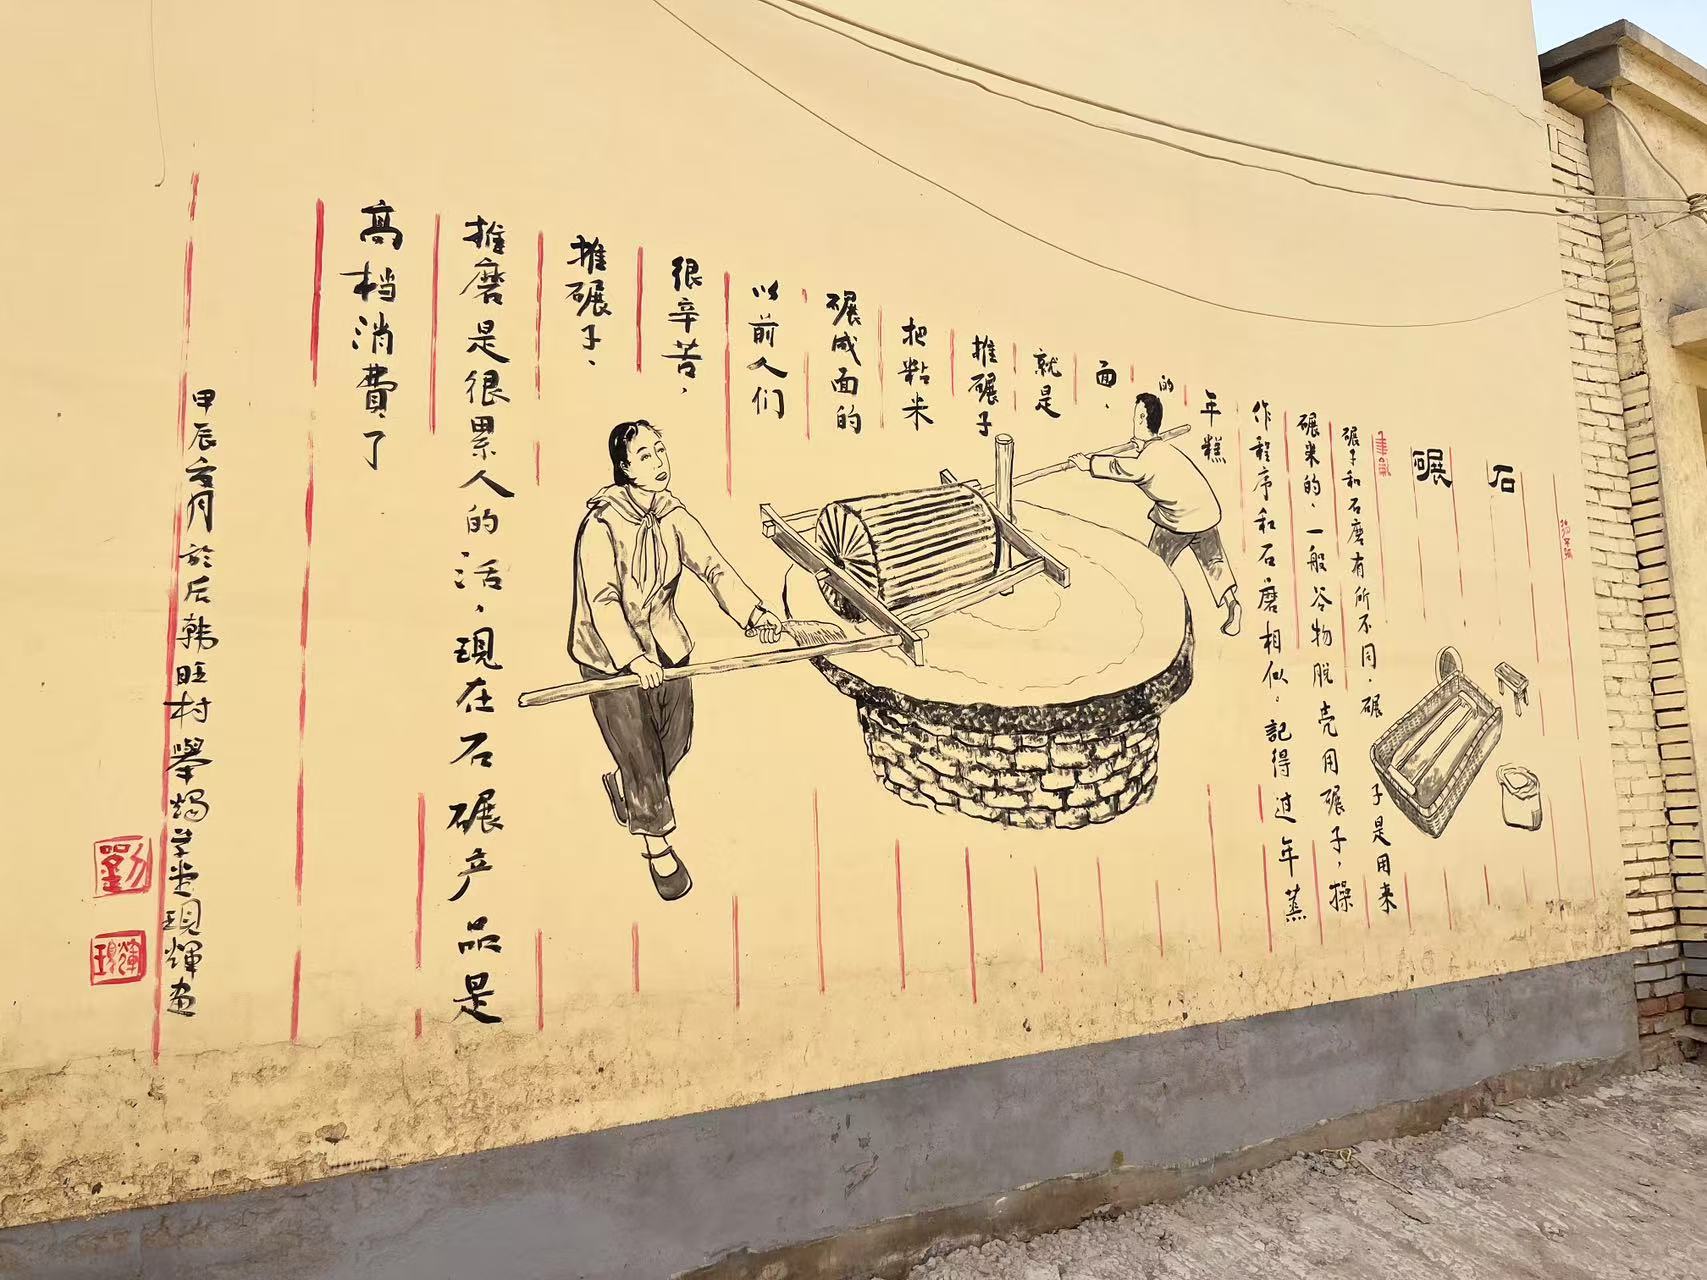 石
碾
碾子和石磨有所不同，碾子是用来
碾米的，一般谷物脱壳用碾子，操
作程序和石磨相似。記得过年蒸
年糕
的
面，
就是
推碾子
把粘米
碾成面的
以前人们
很辛苦，
推碾子、
推磨是很累人的活，现在石碾产品是
高档消費了
甲辰 月於后韩旺村舉燭草堂現輝画
劉
現輝